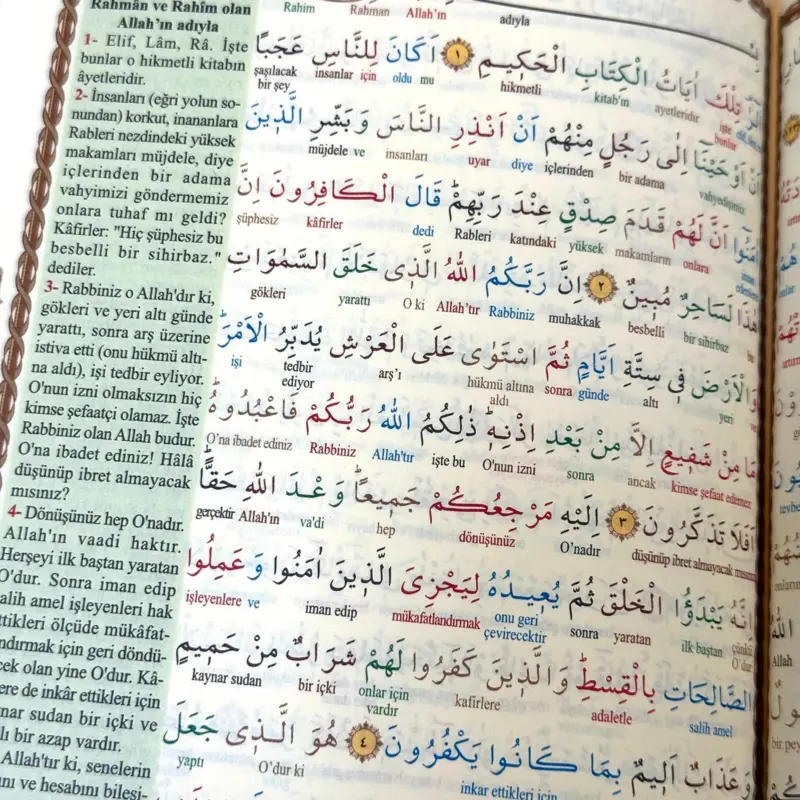 Rahmân ve Rahîm olan
Allah'ın adıyla
1- Elif, Lâm, Râ. İşte
bunlar o hikmetli kitabın
âyetleridir.
2- İnsanları (eğri yolun so-
nundan) korkut, inananlara
Rableri nezdindeki yüksek
makamları müjdele, diye
içlerinden bir adama
vahyimizi göndermemiz
onlara tuhaf mı geldi?
Kâfirler: "Hiç şüphesiz bu
besbelli bir sihirbaz."
dediler.
3- Rabbiniz o Allah'dır ki,
gökleri ve yeri altı günde
yarattı, sonra arş üzerine
istiva etti (onu hükmü altı-
na aldı), işi tedbir eyliyor.
O'nun izni olmaksızın hiç
kimse şefaatçi olamaz. İşte
Rabbiniz olan Allah budur.
O'na ibadet ediniz! Hâlâ
düşünüp ibret almayacak
mısınız?
4- Dönüşünüz hep O'nadır.
Allah'ın vaadi haktır.
Herşeyi ilk baştan yaratan
O'dur. Sonra iman edip
salih amel işleyenleri hak
ettikleri ölçüde mükâfat-
landırmak için geri döndü-
cek olan yine O'dur. Kâ-
lere de inkâr ettikleri için
nar sudan bir içki ve
lı bir azap vardır.
Allah'tır ki, senelerin
ını ve hesabını bilesi-
Rahim Rahman Allah'ın adıyla
تِلْكَ اٰيَاتُ الْكِتَابِ الْحَكِيمِ ﴿١﴾ اَكَانَ لِلنَّاسِ عَجَبًا
işte bunlar ayetleridir kitab'ın hikmetli oldu mu insanlar için şaşılacak bir şey
اَنْ اَوْحَيْنَٓا اِلٰى رَجُلٍ مِنْهُمْ اَنْ اَنْذِرِ النَّاسَ وَبَشِّرِ الَّذ۪ينَ
vahyedişimiz bir adama içlerinden diye uyar insanları müjdele ve
اٰمَنُٓوا اَنَّ لَهُمْ قَدَمَ صِدْقٍ عِنْدَ رَبِّهِمْ قَالَ الْكَافِرُونَ اِنَّ
iman edenlere onlara makamların yüksek katındaki Rableri dedi kâfirler şüphesiz
هٰذَا لَسَاحِرٌ مُب۪ينٌ ﴿٢﴾ اِنَّ رَبَّكُمُ اللهُ الَّذ۪ى خَلَقَ السَّمٰوَاتِ
bu bir sihirbaz besbelli muhakkak Rabbiniz Allah'tır O ki yarattı gökleri
وَالْاَرْضَ ف۪ى سِتَّةِ اَيَّامٍ ثُمَّ اسْتَوٰى عَلَى الْعَرْشِ يُدَبِّرُ الْاَمْرَ
yeri altı günde sonra hükmü altına aldı arş'ı tedbir ediyor işi
مَا مِنْ شَف۪يعٍ اِلَّا مِنْ بَعْدِ اِذْنِه۪ ذٰلِكُمُ اللهُ رَبُّكُمْ فَاعْبُدُوهُ
kimse şefaat edemez ancak sonra O'nun izni işte bu Allah'tır Rabbiniz O'na ibadet ediniz
اَفَلَا تَذَكَّرُونَ ﴿٣﴾ اِلَيْهِ مَرْجِعُكُمْ جَم۪يعًا وَعْدَ اللهِ حَقًّا
düşünüp ibret almayacak mısınız O'nadır dönüşünüz hep va'di Allah'ın gerçektir
اِنَّهُ يَبْدَؤُا الْخَلْقَ ثُمَّ يُع۪يدُهُ لِيَجْزِىَ الَّذ۪ينَ اٰمَنُوا وَعَمِلُوا
çünkü O'dur ilk baştan yaratan sonra onu geri çevirecektir mükafatlandırmak iman edip işleyenlere ve
الصَّالِحَاتِ بِالْقِسْطِ وَالَّذ۪ينَ كَفَرُوا لَهُمْ شَرَابٌ مِنْ حَم۪يمٍ
salih amel adaletle kafirlere onlar için vardır bir içki kaynar sudan
وَعَذَابٌ اَل۪يمٌ بِمَا كَانُوا يَكْفُرُونَ ﴿٤﴾ هُوَ الَّذ۪ى جَعَلَ
inkar ettikleri için O'dur ki yaptı